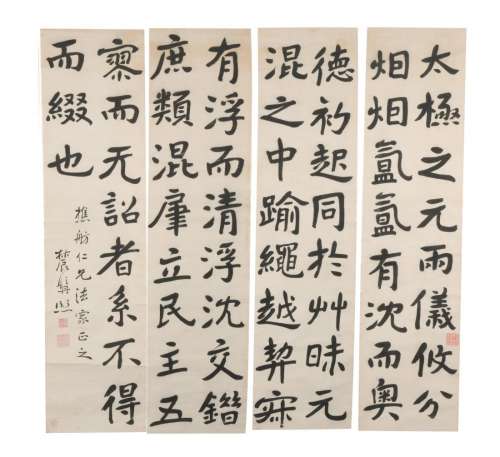 太極之元兩儀攸分
烟烟氳氳有沈而奧
德初起同於艸昧元
混之中踰繩越契寂
有浮而清浮沈交錯
庶類混肁立民主五
寥而无詔者系不得
而綴也
樵舫仁兄法家正之
農髯熙